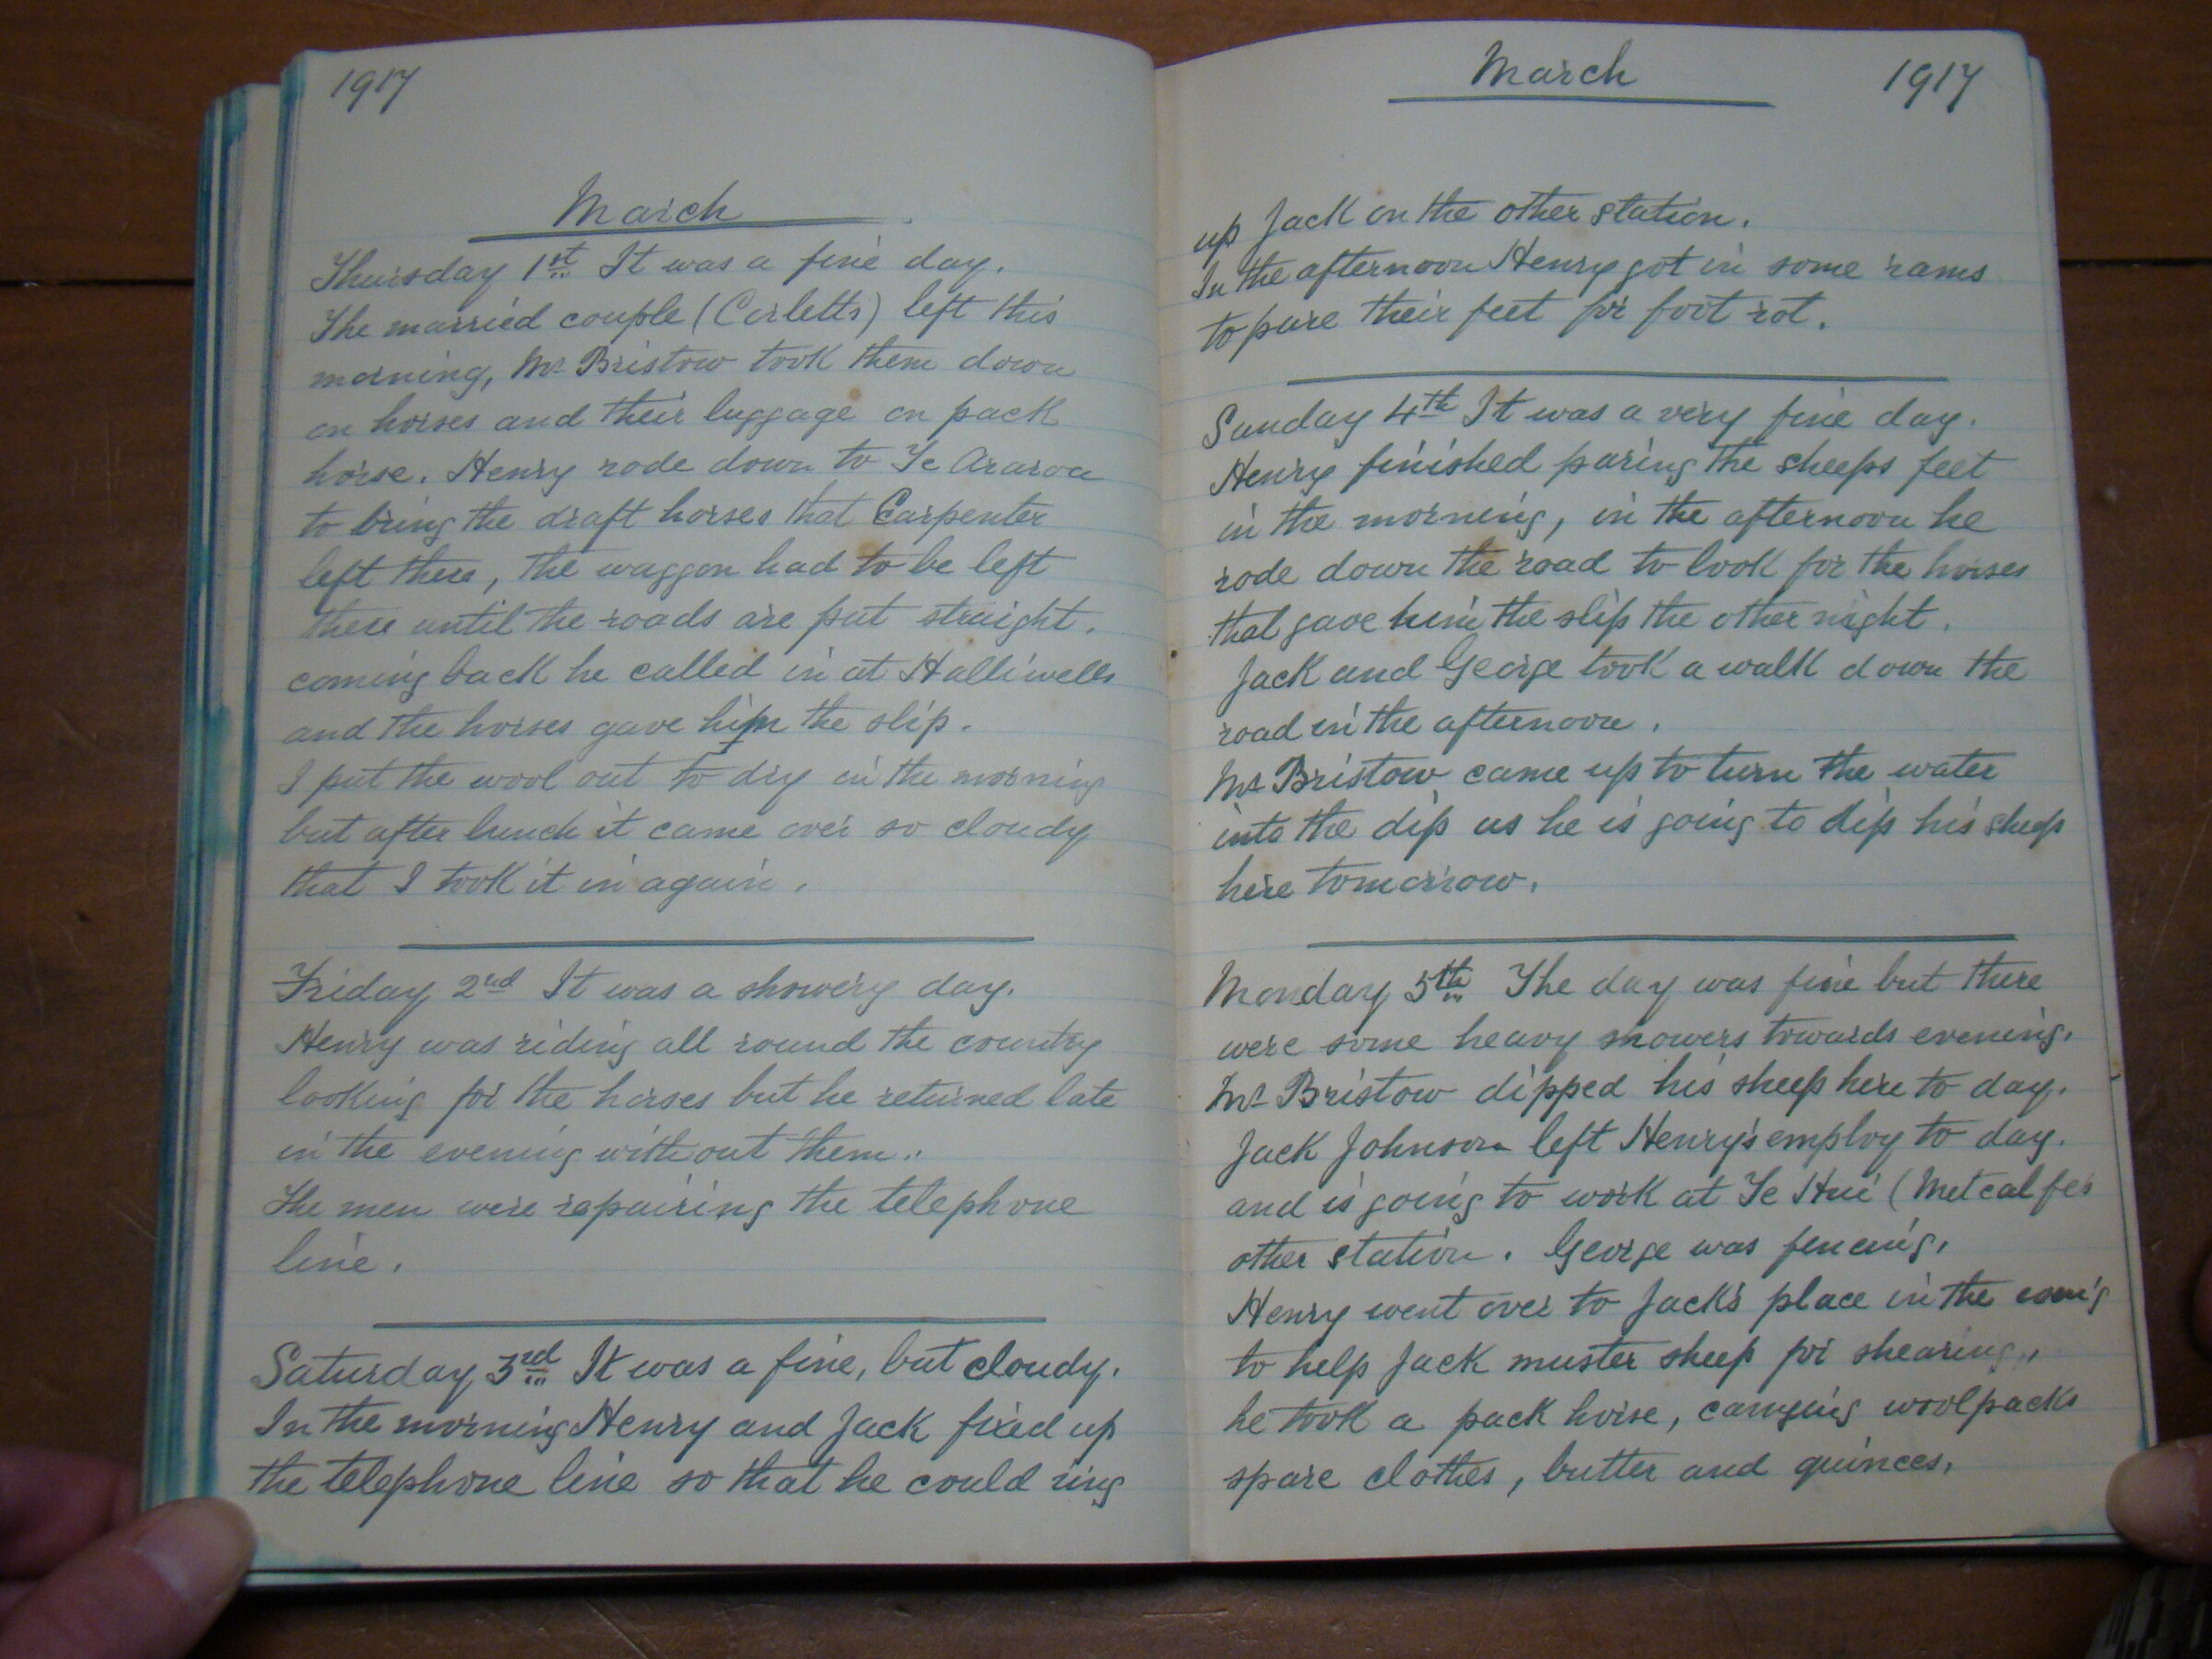 1917
March
Thursday 1st It was a fine day.
The married couple (Corletts) left this
morning, Mr Bristow took them down
on horses and their luggage on pack
horse. Henry rode down to Te Araroa
to bring the draft horses that Carpenter
left there, the waggon had to be left
there until the roads are put straight.
coming back he called in at Halliwells
and the horses gave him the slip.
I put the wool out to dry in the morning
but after lunch it came over so cloudy
that I took it in again.
Friday 2nd It was a showery day.
Henry was riding all round the country
looking for the horses but he returned late
in the evening without them..
The men were repairing the telephone
line.
Saturday 3rd It was a fine, but cloudy.
In the morning Henry and Jack fixed up
the telephone line so that he could ring
March 1917
up Jack on the other station.
In the afternoon Henry got in some rams
to pare their feet for foot rot.
Sunday 4th It was a very fine day.
Henry finished paring the sheeps feet
in the morning, in the afternoon he
rode down the road to look for the horses
that gave him the slip the other night.
Jack and George took a walk down the
road in the afternoon.
Mr Bristow came up to turn the water
into the dip as he is going to dip his sheep
here tomorrow.
Monday 5th The day was fine but there
were some heavy showers towards evening.
Mr Bristow dipped his sheep here to day.
Jack Johnson left Henry's employ to day.
and is going to work at Te Hue (Metcalfes
other station. George was fencing.
Henry went over to Jack's place in the even'g
to help Jack muster sheep for shearing,,
he took a pack horse, carrying woolpacks
spare clothes, butter and quinces.